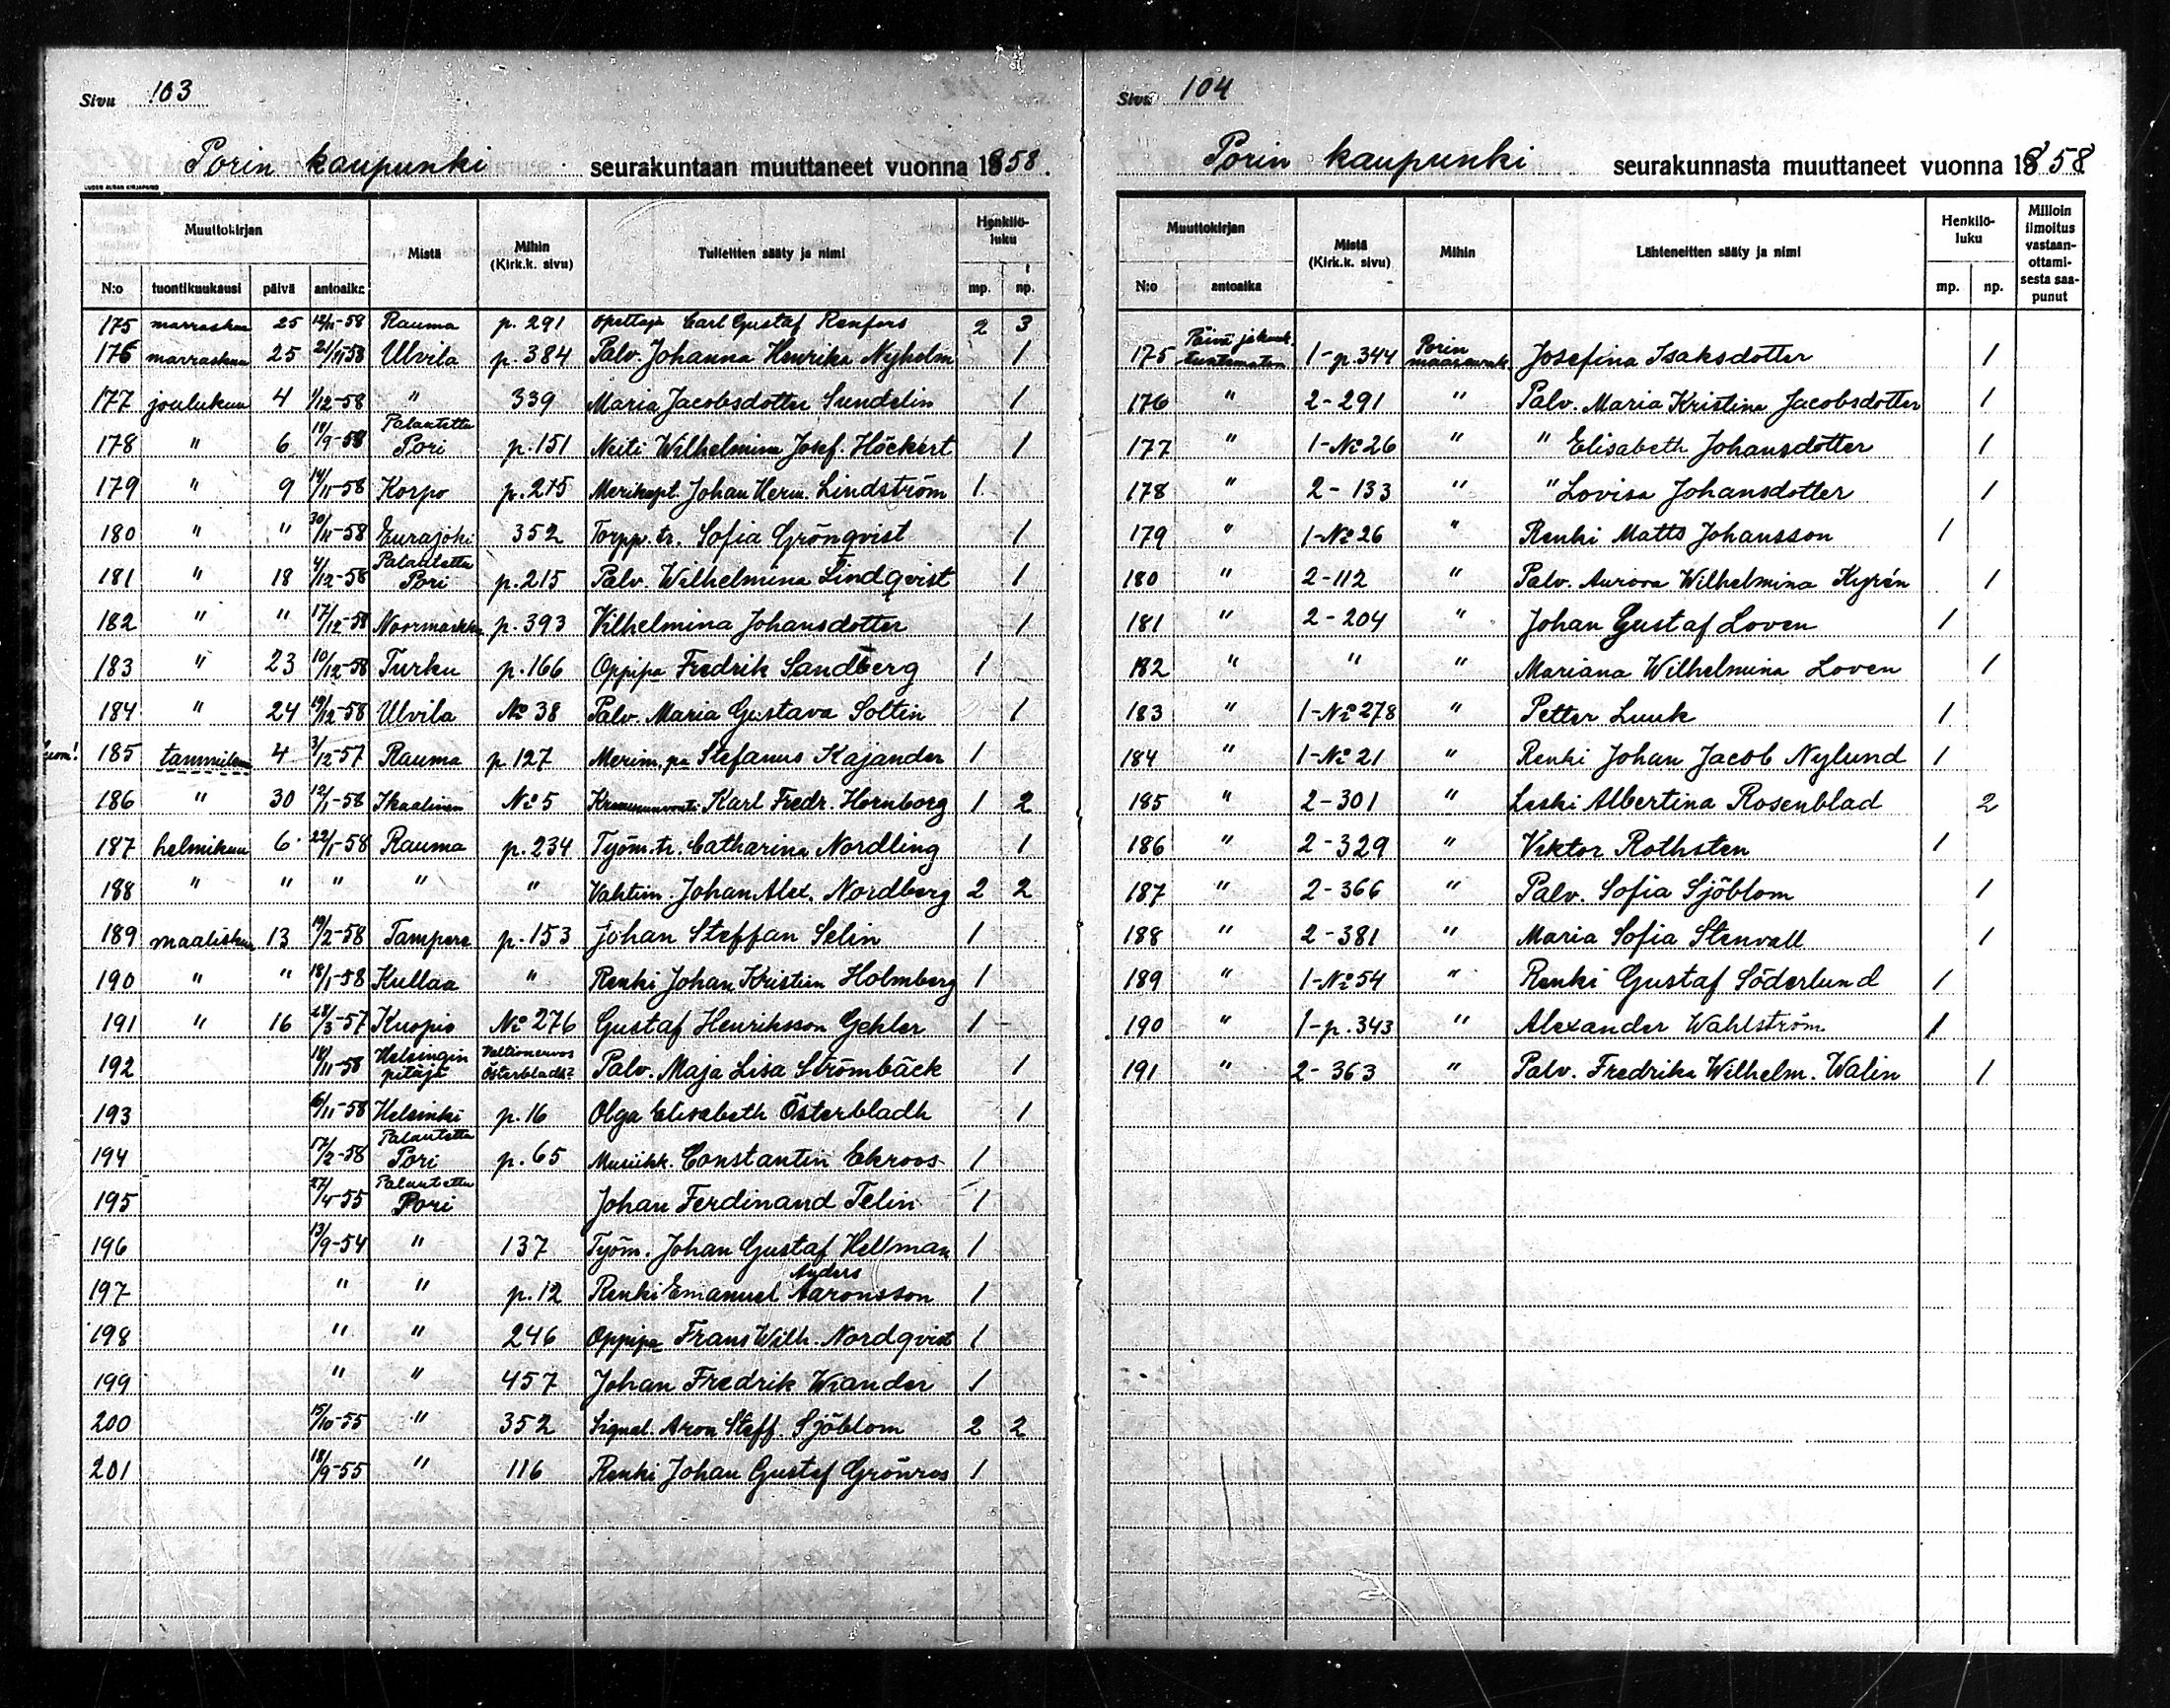 Sivu 103
Porin kaupunki seurakuntaan muuttaneet vuonna 1858.
Muuttokirjan Mistä Mihin (Kirk.k. sivu) Tulleitten sääty ja nimi Henkilö-luku
N:o tuontikuukausi päivä antoaika mp. np.
175 marraskuu 25 12/11-58 Rauma p. 291 Opettaja Carl Gustaf Renfors 2 3
176 marraskuu 25 21/11-58 Ulvila p. 384 Palv. Johanna Henrika Nyholm 1
177 joulukuu 4 1/12-58 " 339 Maria Jacobsdotter Sundelin 1
178 " 6 18/9-58 Palautettu Pori p. 151 Neiti Wilhelmina Josef. Höckert 1
179 " 9 14/11-58 Korpo p. 215 Merikapt. Johan Herm. Lindström 1
180 " " 30/11-58 Eurajoki 352 Torpp. tr. Sofia Grönqvist 1
181 " 18 4/12-58 Palautettu Pori p. 215 Palv. Wilhelmina Lindqvist 1
182 " " 17/12-58 Noormarkku p. 393 Vilhelmina Johansdotter 1
183 " 23 10/12-58 Turku p. 166 Oppipa Fredrik Sandberg 1
184 " 24 19/12-58 Ulvila No 38 Palv. Maria Gustava Soltin 1
185 tammikuu 4 3/12-57 Rauma p 127 Merim. pa Stefanus Kajander 1
186 " 30 12/1-58 Ikaalinen No 5 Kruununvouti Karl Fredr. Hornborg 1 2
187 helmikuu 6 22/1-58 Rauma p. 234 Työm. tr. Catharina Nordling 1
188 " " " " " Vahtim. Johan Alex. Nordberg 2 2
189 maaliskuu 13 19/2-58 Tampere p. 153 Johan Steffan Selin 1
190 " " 18/1-58 Kullaa " Renki Johan Kristian Holmberg 1
191 " 16 28/3-57 Kuopio No 276 Gustaf Henriksson Gehler 1
192 18/11-58 Helsingin pitäjä Österblads? Palv. Maja Lisa Strömbäck 1
193 6/11-58 Helsinki p. 16 Olga Elisabeth Österbladh 1
194 17/2-58 Palautettu Pori p. 65 Musiikk. Constantin Ekroos 1
195 27/4-55 Palautettu Pori Johan Ferdinand Telin 1
196 13/9-54 " 137 Työm. Johan Gustaf Hellman 1
197 " " p. 12 Renki Emanuel Anders Aaronsson 1
198 " " 246 Oppipa Frans Wilh. Nordqvist 1
199 " " 457 Johan Fredrik Wiander 1
200 15/10-55 " 352 Signal. Aron Steff. Sjöblom 2 2
201 18/9-55 " 116 Renki Johan Gustaf Grönroos 1
Sivu 104
Porin kaupunki seurakunnasta muuttaneet vuonna 1858
Muuttokirjan Mistä (Kirk.k. sivu) Mihin Lähteneitten sääty ja nimi Henkilö-luku Milloin ilmoitus vastaan-ottami-sesta saa-punut
N:o antoaika mp. np.
175 Päivä ja kuuk. tuntematon 1-p. 344 Porin maaseurak. Josefina Isaksdotter 1
176 " 2-291 " Palv. Maria Kristina Jacobsdotter 1
177 " 1-No 26 " " Elisabeth Johansdotter 1
178 " 2-133 " " Lovisa Johansdotter 1
179 " 1-No 26 " Renki Matts Johansson 1
180 " 2-112 " Palv. Aurora Wilhelmina Kyrén 1
181 " 2-204 " Johan Gustaf Loven 1
182 " " " Mariana Wilhelmina Loven 1
183 " 1-No 278 " Petter Luuk 1
184 " 1-No 21 " Renki Johan Jacob Nylund 1
185 " 2-301 " Leski Albertina Rosenblad 2
186 " 2-329 " Viktor Rothsten 1
187 " 2-366 " Palv. Sofia Sjöblom 1
188 " 2-381 " Maria Sofia Stenvall 1
189 " 1-No 54 " Renki Gustaf Söderlund 1
190 " 1-p. 343 " Alexander Wahlström 1
191 " 2-363 " Palv. Fredrika Wilhelm. Walin 1